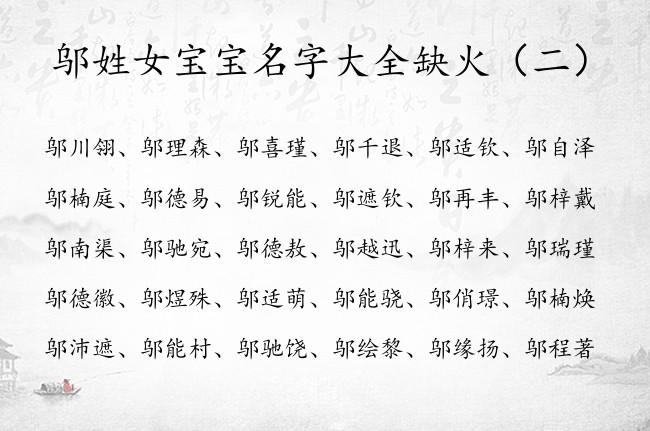 邬姓女宝宝名字大全缺火（二）
邬川翎、邬理森、邬喜瑾、邬千退、邬适钦、邬自泽
邬楠庭、邬德易、邬锐能、邬遮钦、邬再丰、邬梓戴
邬南渠、邬驰宛、邬德敖、邬越迅、邬梓来、邬瑞瑾
邬德徽、邬煜殊、邬适萌、邬能骁、邬俏璟、邬楠焕
邬沛遮、邬能村、邬驰饶、邬绘黎、邬缘扬、邬程著